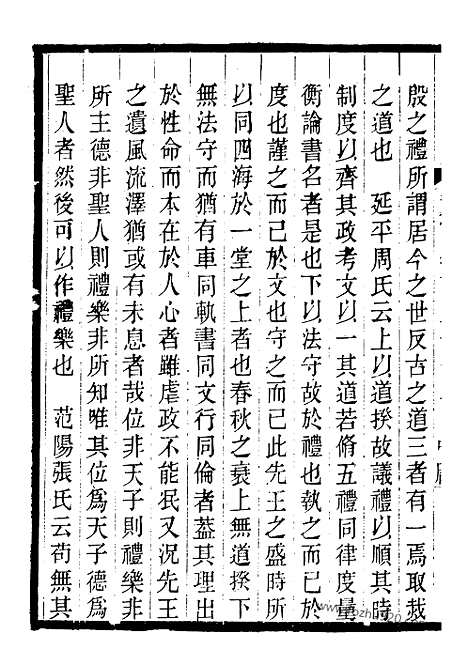 殷之禮所謂居今之世反古之道三者有一焉取烖
之道也　延平周氏云上以道揆故議禮以順其時
制度以齊其政考文以一其道若脩五禮同律度量
衡論書名者是也下以法守故於禮也執之而已於
度也謹之而已於文也守之而已此先王之盛時所
以同四海於一堂之上者也春秋之衰上無道揆下
無法守而猶有車同軌書同文行同倫者葢其理出
於性命而本在於人心者雖虐政不能泯又況先王
之遺風流澤猶或有未息者哉位非天子則禮樂非
所主德非聖人則禮樂非所知唯其位爲天子德爲
聖人者然後可以作禮樂也　范陽張氏云苟無其